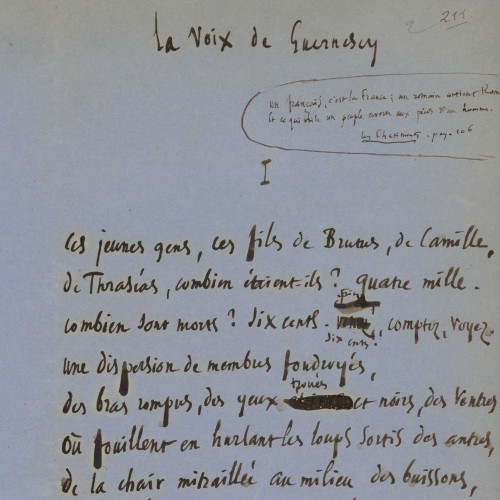 211
La Voix de Guernesey
un français, c'est la France; un romain contient Rome
Et ce qui brise un peuple avorte aux pieds d'un homme.
Les Châtiments. pag. 106
I
Ces jeunes gens, ces fils de Brutus, de Camille,
de Thraséas, combien étaient-ils ? quatre mille.
combien sont morts ? Six cents.
Six cents !
, comptez, voyez
une dispersion de membres foudroyés,
troués
des bras rompus, des yeux et noirs, des ventres
Où fouillent en hurlant les loups sortis des antres,
de la chair mitraillée au milieu des buissons,